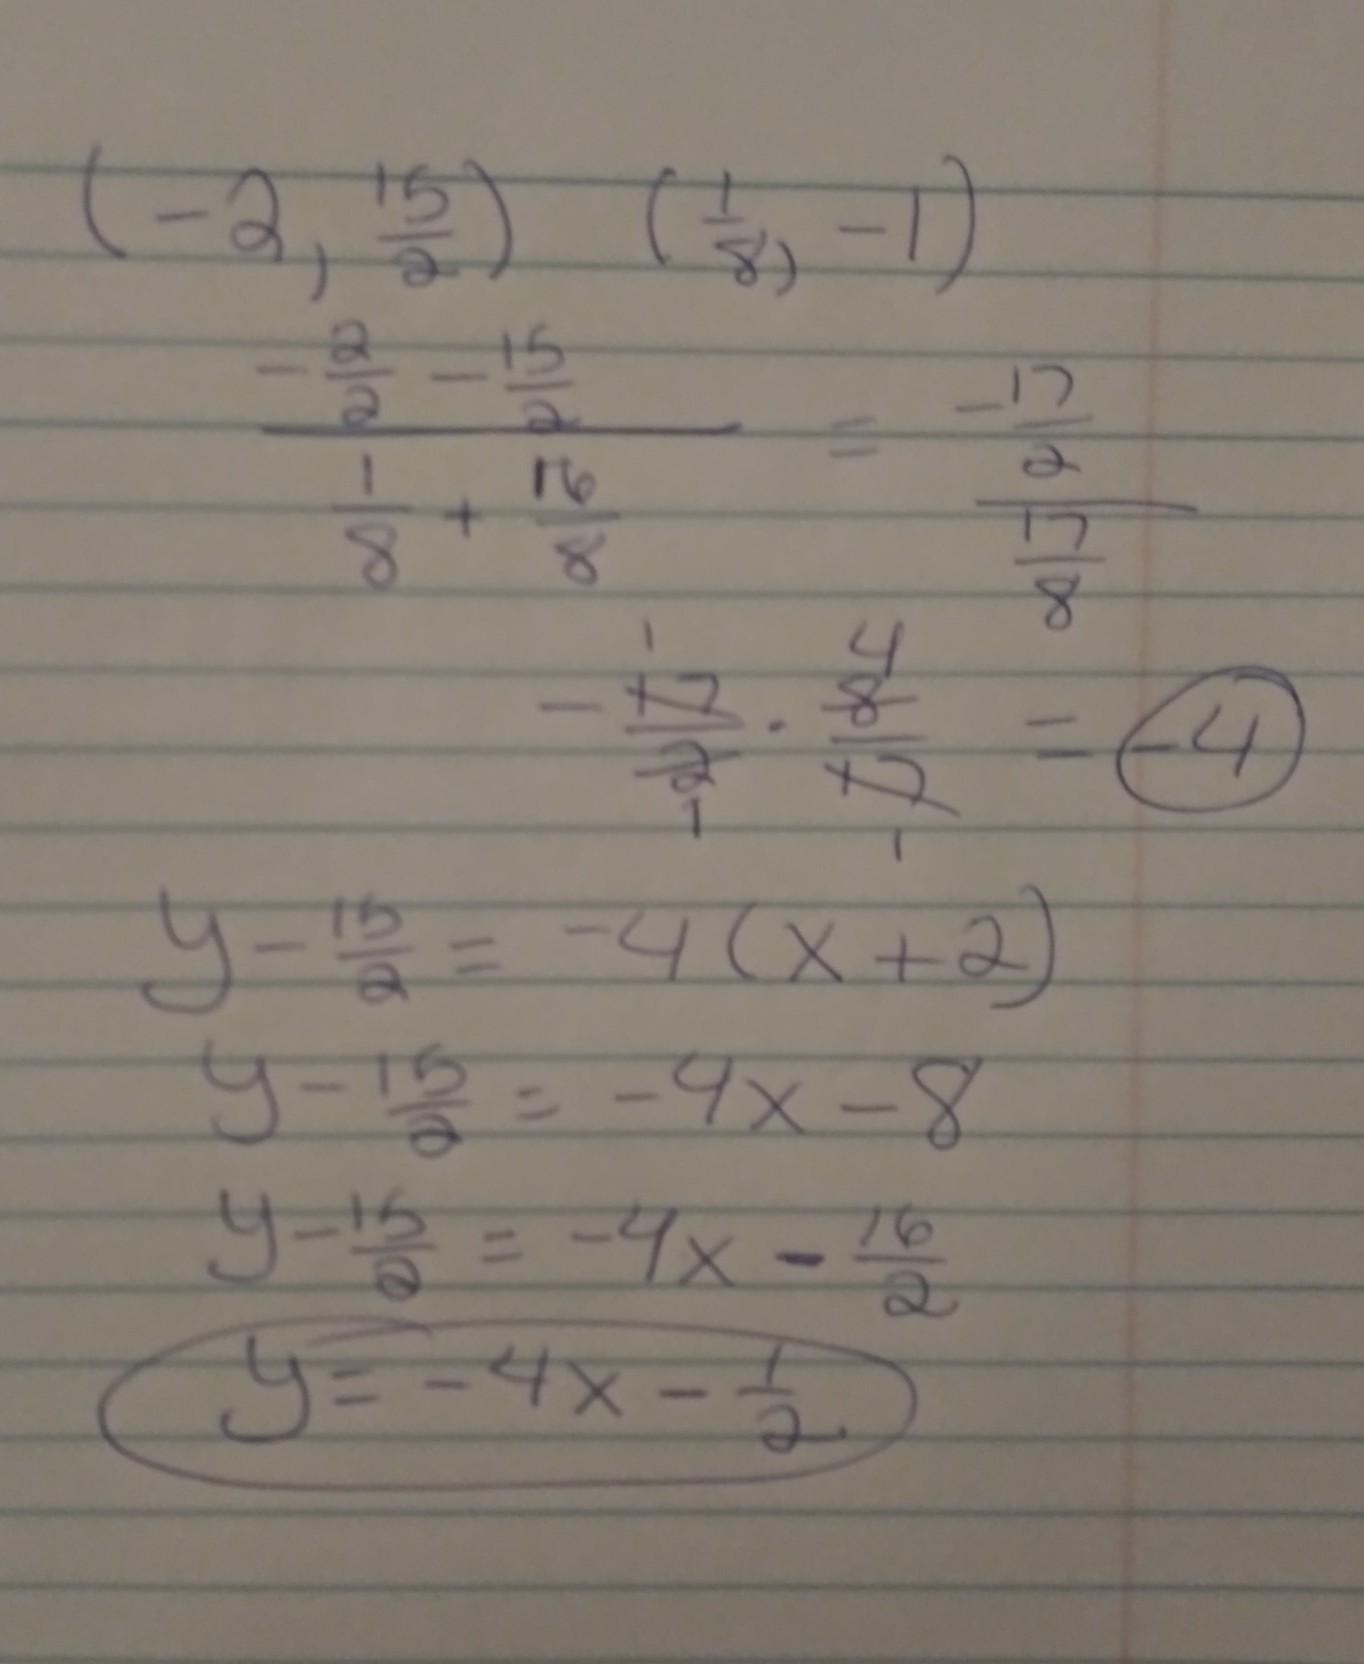 (-2, 15/2) (1/8, -1)
(-2/2 - 15/2)/(1/8 + 16/8) = (-17/2)/(17/8)
-17/2 · 8/17 = -4
1 4
1 1
y - 15/2 = -4(x+2)
y - 15/2 = -4x - 8
y - 15/2 = -4x - 16/2
y = -4x - 1/2